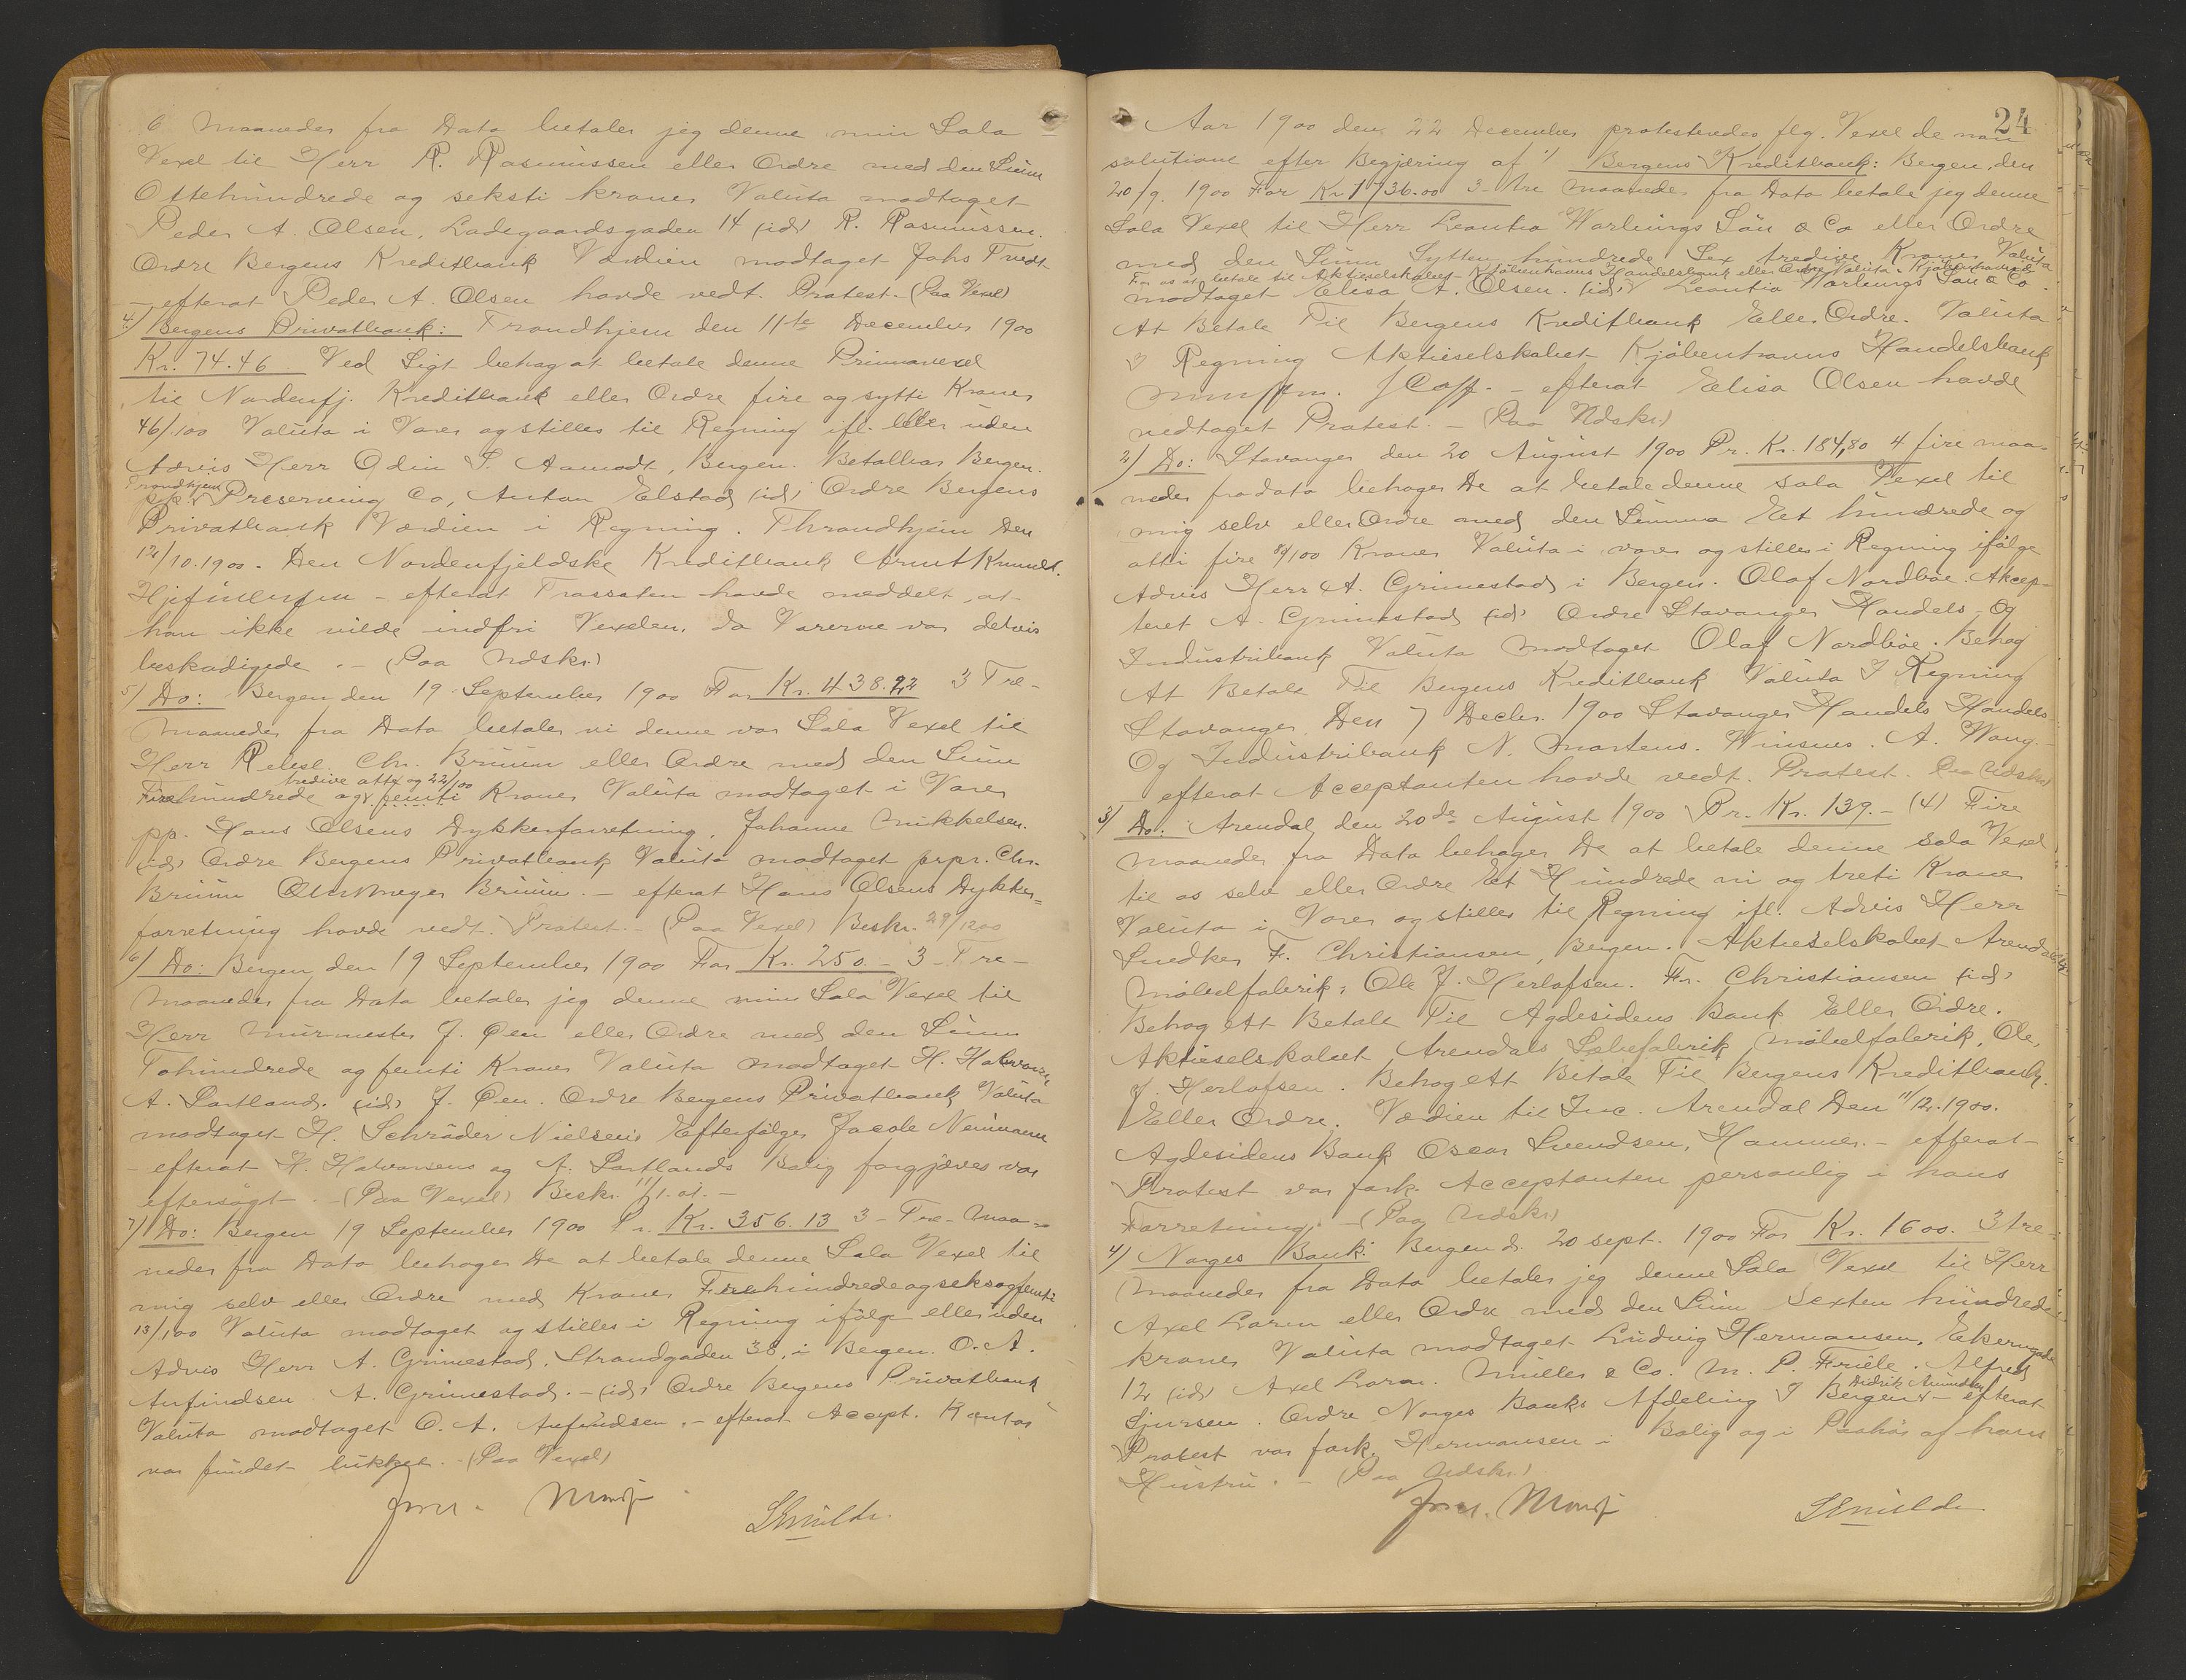 6 Maaneder fra Dato betaler jeg denne min Sola
Vexel til Herr R. Rasmussen eller Ordre med den Sum
Ottehundrede og seksti kroner Valuta modtaget
Peder A. Olsen, Ladegaardsgaden 14 (id) R. Rasmussen.
Ordre Bergens Kreditbank Værdien modtaget Johs Tvedt
- efterat Peder A. Olsen havde vedt. Protest. - (Paa Vexel)
4) Bergens Privatbank: Trondhjem den 11te December 1900
Kr. 74.46 Ved Sigt behag at betale denne Primavexel
til Nordenfj. Kreditbank eller Ordre fire og sytti Kroner
46/100 Valuta i Varer og stilles til Regning ifl. eller uden
Advis Herr Odin S. Aamodt, Bergen. Betalbar Bergen.
Trondhjem
pp. x Preserving Co, Anton Elstad (id) Ordre Bergens
Privatbank Værdien i Regning. Throndhjem Den
12/10.1900. Den Nordenfjeldske Kreditbank Arnt Knudt.
- efterat Trassaten havde meddelt, at
han ikke vilde indfri Vexelen, da Varerne var delvis
beskadigede. - (Paa Udskr.)
5) Do: Bergen den 19 September 1900 For Kr. 438.22 3 Tre-
Maaneder fra Dato betaler vi denne vor Sola Vexel til
Herr Rebsl. Chr. Bruun eller Ordre med den Sum
tredive otte og 22/100
Firehundrede og x femti Kroner Valuta modtaget i Varer
pp. Hans Olsens Dykkerforretning. Johanne Mikkelsen.
(id) Ordre Bergens Privatbank Valuta modtaget prpr. Chr.
Bruun Bruun. - efterat Hans Olsens Dykker=
forretning havde vedt. Protest. - (Paa Vexel) Beskr. 29/1200
6) Do: Bergen den 19 September 1900 For Kr. 250.- 3 - Tre-
Maaneder fra Dato betaler jeg denne min Sola Vexel til
Herr Murmester J. Øen eller Ordre med den Sum
Tohundrede og femti Kroner Valuta modtaget H. Halvorsen
A. Sortland. (id) J. Øen. Ordre Bergens Privatbank Valuta
modtaget H. Schrøder Nielsens Efterfølger Jacob Neumann
- efterat H. Halvorsens og A. Sortlands Bolig forgjæves var
eftersøgt. - (Paa Vexel) Beskr. 11/1.01. -
7) Do: Bergen 19 September 1900 Pr. Kr. 356.13 3 - Tre - Maa-
neder fra Dato behager De at betale denne Sola Vexel til
mig selv eller Ordre med Kroner Trehundredeogseksogfemti
13/100 Valuta modtaget og stilles i Regning ifølge eller uden
Advis Herr A. Grimestad, Strandgaden 38, i Bergen. O. A.
Anfindsen. A. Grimestad. - (id) Ordre Bergens Privatbank
Valuta modtaget O. A. Anfindsen. - efterat Accept. Kontor
var fundet lukket. - (Paa Vexel)
24
Aar 1900 den 22 December protesteredes flg. Vexel de non
solutione efter Begjæring af 1/ Bergens Kreditbank: Bergen, den
20/9. 1900 For Kr. 1736.00 3 - tre Maaneder fra Dato betale jeg denne
Sola Vexel til Herr Leontia Warlings Søn & Co eller Ordre
med den Sum Sytten hundrede Sex tredive Kroner Valuta
For os at betale til Aktieselskabet Kjøbenhavns Handelsbank eller Ordre Valuta. Kjøbenhavn
modtaget Elisa A. Olsen. (id) x Leontia Warlings Søn & Co.
At Betale Til Bergens Kreditbank Eller Ordre. Valuta
I Regning Aktieselskabet Kjøbenhavns Handelsbank
- efterat Elisa Olsen havde
vedtaget Protest. - (Paa Udskr.)
2) Do: Stavanger den 20 August 1900 Pr. Kr. 184,80 4 fire maa-
neder fra dato behager De at betale denne sola Vexel til
mig selv eller Ordre med den Summa Et hundrede og
otti fire 80/100 Kroner Valuta i varer og stilles i Regning ifølge
Advis Herr A. Grimestad i Bergen. Olaf Nordbøe. Akcep-
teret A. Grimestad (id) Ordre Stavanger Handels- Og
Industribank Valuta Modtaget Olaf Nordbøe. Behag
At Betale Til Bergens Kreditbank Valuta I Regning
Stavanger Den 7 Decbr. 1900 Stavanger Handels Handels
Og Industribank N. Mortens. Winsnes. A. Wang. -
efterat Acceptanten havde vedt. Protest. (Paa Udskr)
3) Do: Arendal den 20de August 1900 Pr. Kr. 139.- (4) Fire
maaneder fra Dato behager De at betale denne sola Vexel
til os selv eller Ordre Et Hundrede ni og treti Kroner
Valuta i Varer og stilles til Regning ifl. Advis Herr
Snedker F. Christiansen, Bergen. Aktieselskabet Arendals
Møbelfabrik: Ole J. Herlofsen. Fr. Christiansen (id)
Behag Att Betale Til Agdesidens Bank Eller Ordre.
Aktieselskabet Arendals Møbelfabrik, Ole,
J. Herlofsen. Behag Att Betale Til Bergens Kreditbank.
Eller Ordre. Værdien til Inc. Arendal Den 11/12.1900.
Agdesidens Bank Oscar Svendsen, Hammer. - efterat
Protest var fork. Acceptanten personlig i hans
Forretning. - (Paa Udskr)
4) Norges Bank: Bergen d. 20 sept. 1900 For Kr. 1600. 3 tre-
Maaneder fra Dato betaler jeg denne Sola Vexel til Herr
Axel Larm eller Ordre med den Sum Sexten hundrede
kroner Valuta modtaget Ludvig Hermansen,
12 (id) Axel Larm. Müller & Co. M. P. Friele. Alfred
Didrik Amundsen
Sjursen. Ordre Norges Banks Afdeling I Bergen x - efterat
Protest var fork. Hermansen i Bolig og i Paahør af hans
Hustru. - (Paa Udskr.)